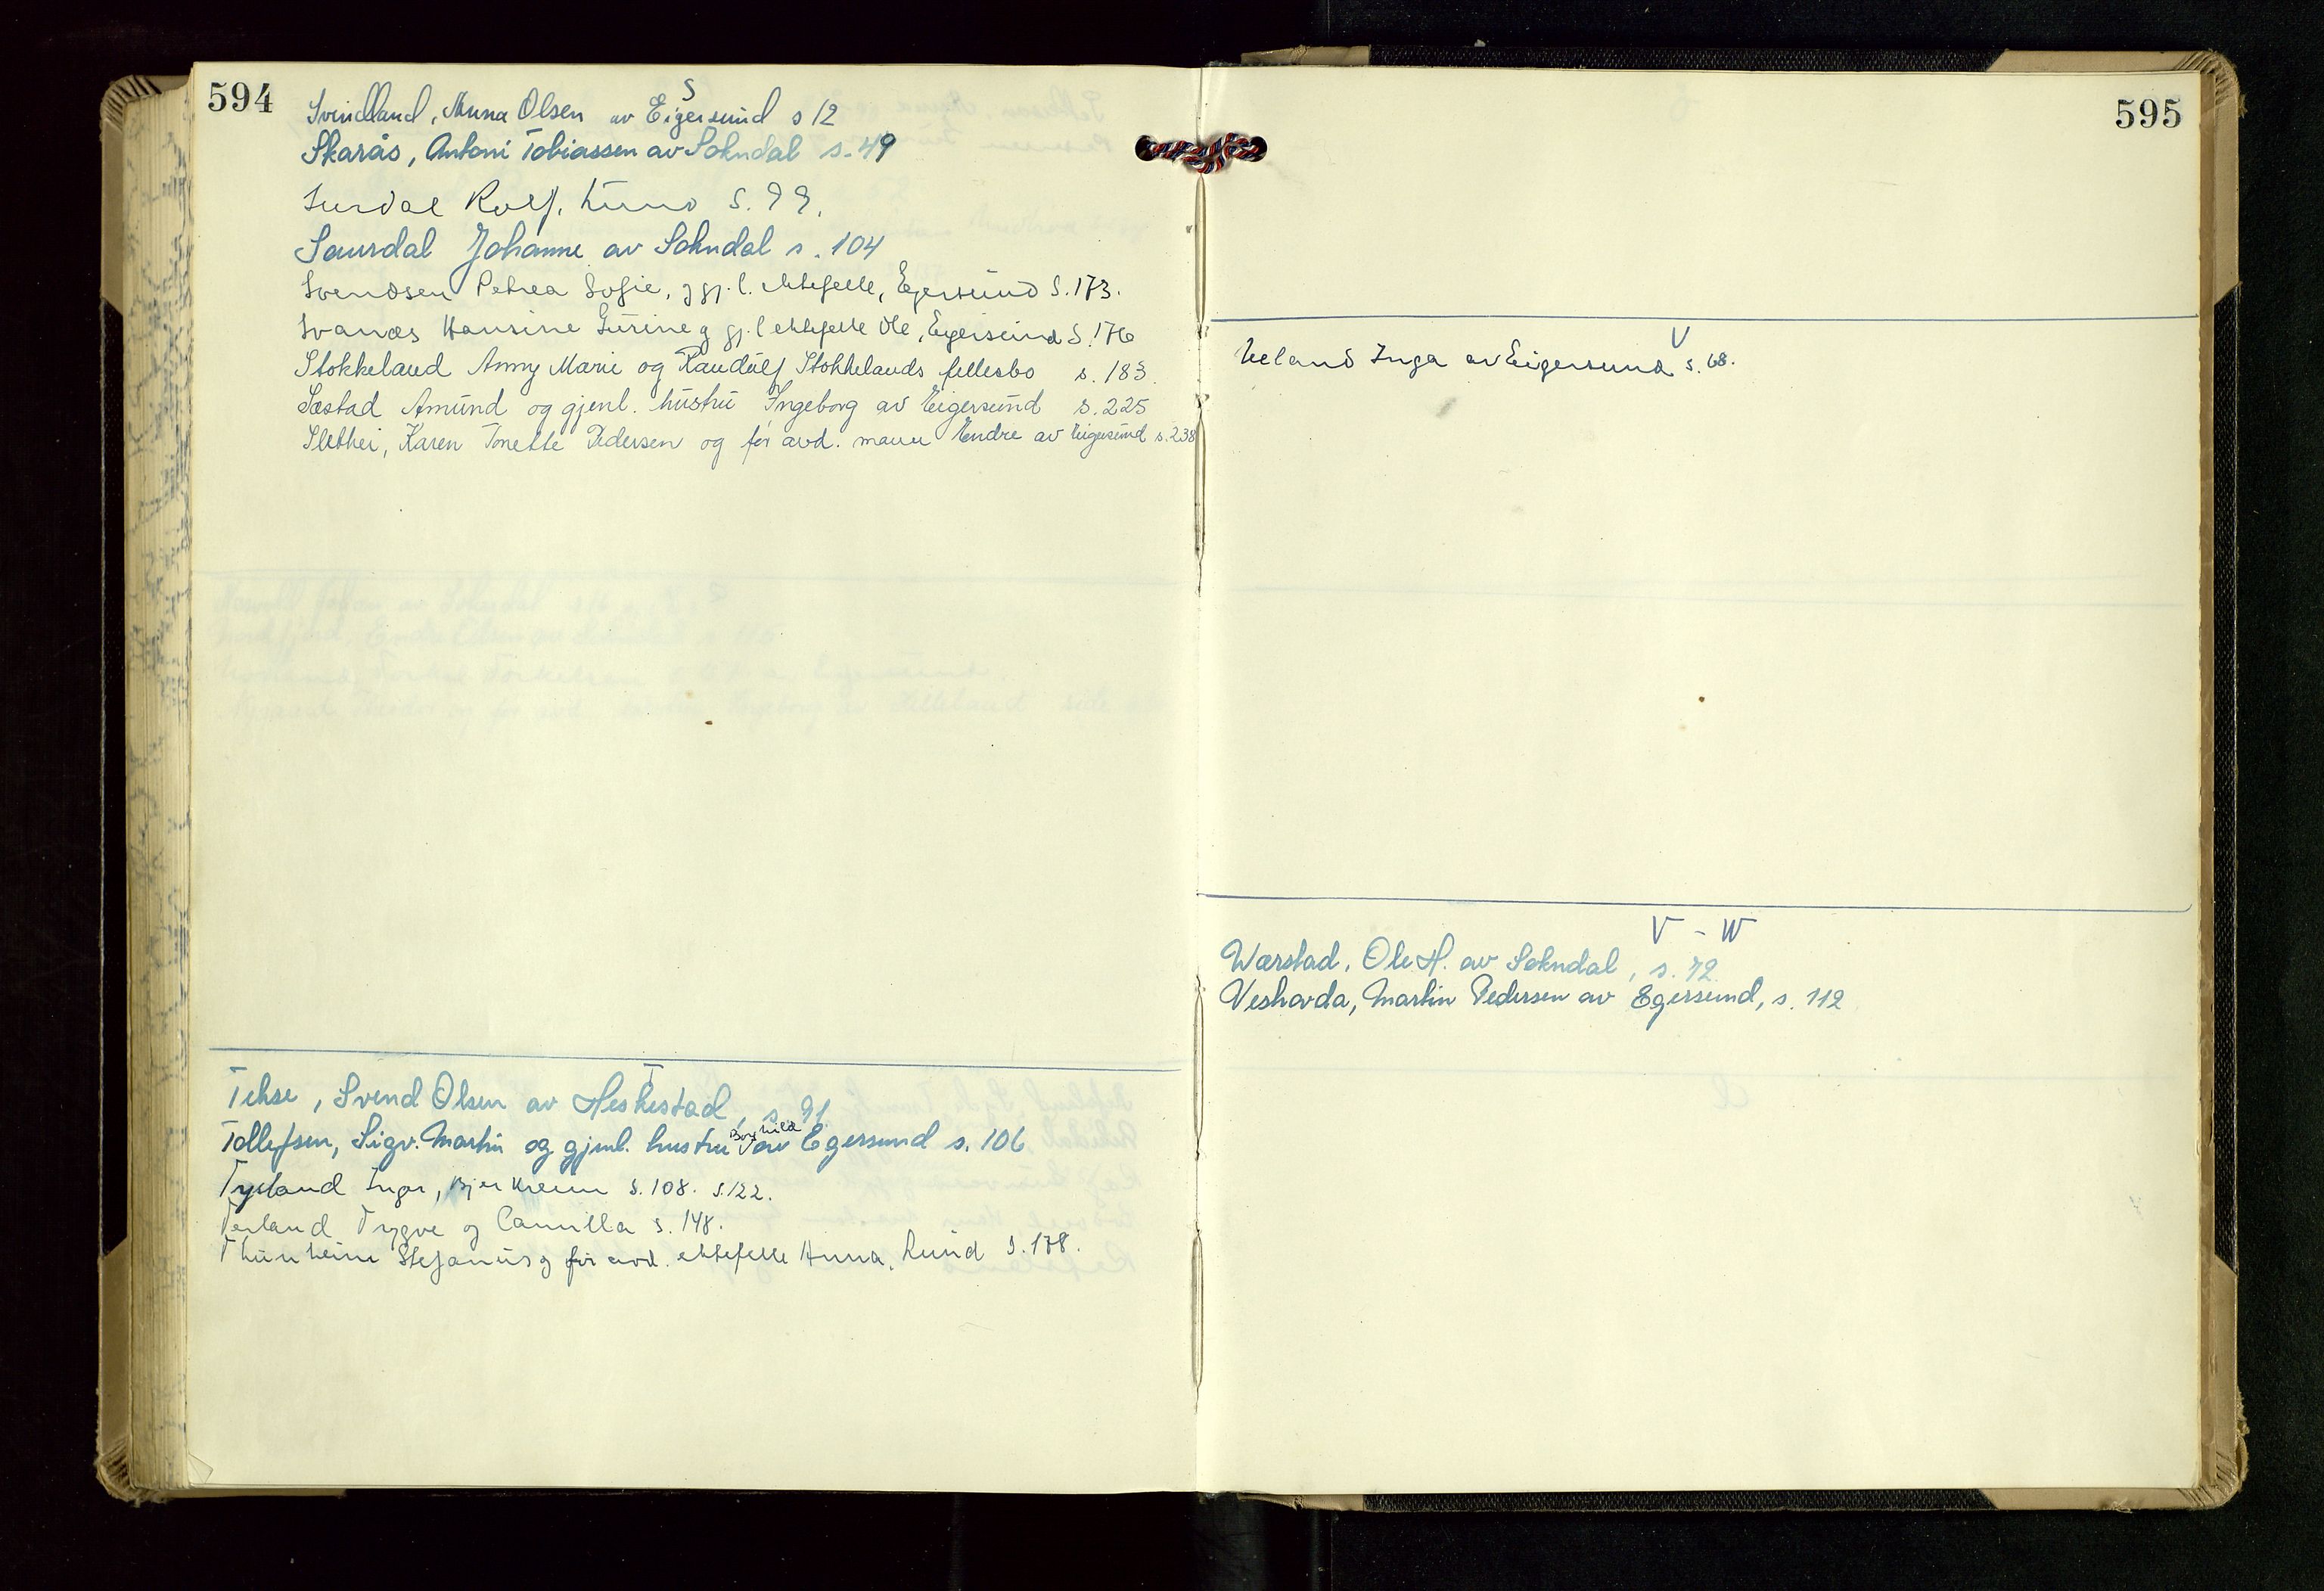 594
S
Svindland, Anna Olsen av Eigersund s 12
Skarås, Antoni Tobiassen av Sokndal s. 49
Surdal Rolf, Lund S. 79.
Saurdal Johanne av Sokndal s. 104
Svendsen Petrea Sofie, g gj. l. ektefelle, Egersund S. 173.
Svanæs Hansine Gurine g gj. l ektefelle Ole, Eigersund S. 176
Stokkeland Anny Marie og Randulf Stokkelands fellesbo s. 183.
Sæstad Amund og gjenl. hustru Ingeborg av Eigersund s. 225
Slethei, Karen Tonette Pedersen og før avd. mann Endre av Eigersund s. 238
T
Tekse, Svend Olsen av Heskestad, s. 91
Tollefsen, Sigv. Martin og gjenl. hustru Borghild av Egersund s. 106
Tysland Inger, Bjerkreim S. 108. S. 122.
Terland Trygve og Camilla S. 148.
Thunheim Stefanus g før avd. ektefelle Anna, Lund S. 178.
595
V
Ueland Inga av Eigersund s. 68.
V - W
Warstad, Ole H. av Sokndal, s. 72
Veshovda, Martin Pedersen av Egersund, s. 112